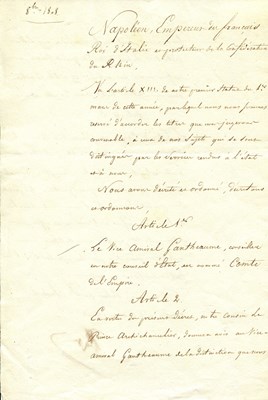 8bre 1808
Napoléon, Empereur des français
Roi d'Italie et protecteur de la Confédération
du Rhin.
Vu l'article XIII de notre premier Statut du 1er
mars de cette année, par lequel nous nous sommes
réservé d'accorder les titres que nous jugerons
convenable, à ceux de nos Sujets qui se sont
distingués par les Services rendus à l'état
et à nous,
Nous avons décrété et ordonné, décrétons
et ordonnons
Article 1er
Le Vice Amiral Gantheaume, conseiller
en notre conseil d'Etat, est nommé Comte
de l'Empire.
Article 2
En vertu du présent décret, notre cousin Le
Prince Archichancelier, donnera avis au Vice
amiral Gantheaume de la distinction que nous